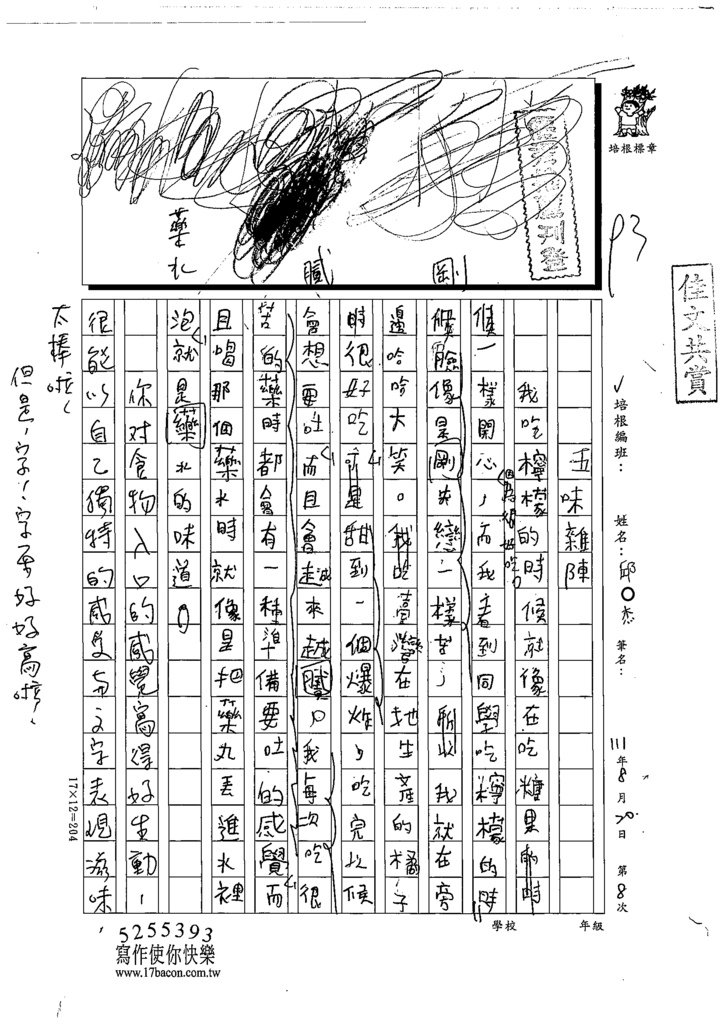 培根標章
P3
佳文共賞
刊登
剛
膩
藥水
培根編班：
姓名：邱○
筆名：
111年8月20日 第8次
學校
年級
五味雜陳
我吃檸檬的時候就像在吃糖果的時
候一樣開心，而我看到同學吃檸檬的時
因為很好吃。
候臉像是剛失戀一樣苦，所以我就在旁
邊哈哈大笑。我吃臺灣在地生產的橘子
時很好吃，可是甜到一個爆炸，吃完以候
會想要吐，而且會越來越膩，我每次吃很
苦的藥時都會有一種準備要吐的感覺，而
且喝那個藥水時就像是把藥丸丟進水裡
泡，就是藥水的味道。
你對食物入口的感覺寫得好生動！
很能以自己獨特的感受與文字表現滋味，
太棒啦！
但是，字！字要好好寫啦！
17×12=204
5255393
寫作使你快樂
www.17bacon.com.tw